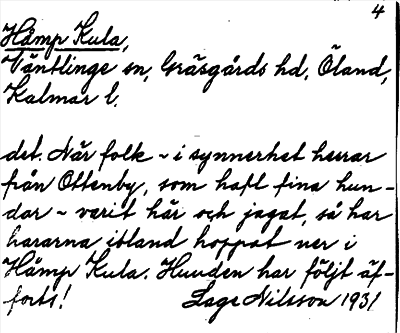 4
Hämp Kula,
Väntlinge sn, Gräsgårds hd, Öland,
Kalmar l.
det. När folk ~ i synnerhet herrar
från Ottenby, som haft fina hun-
dar ~ varit här och jagat, så har
hararna ibland hoppat ner i
Hämp Kula. Hunden har följt äf-
forts!
Lage Nilsson 1931